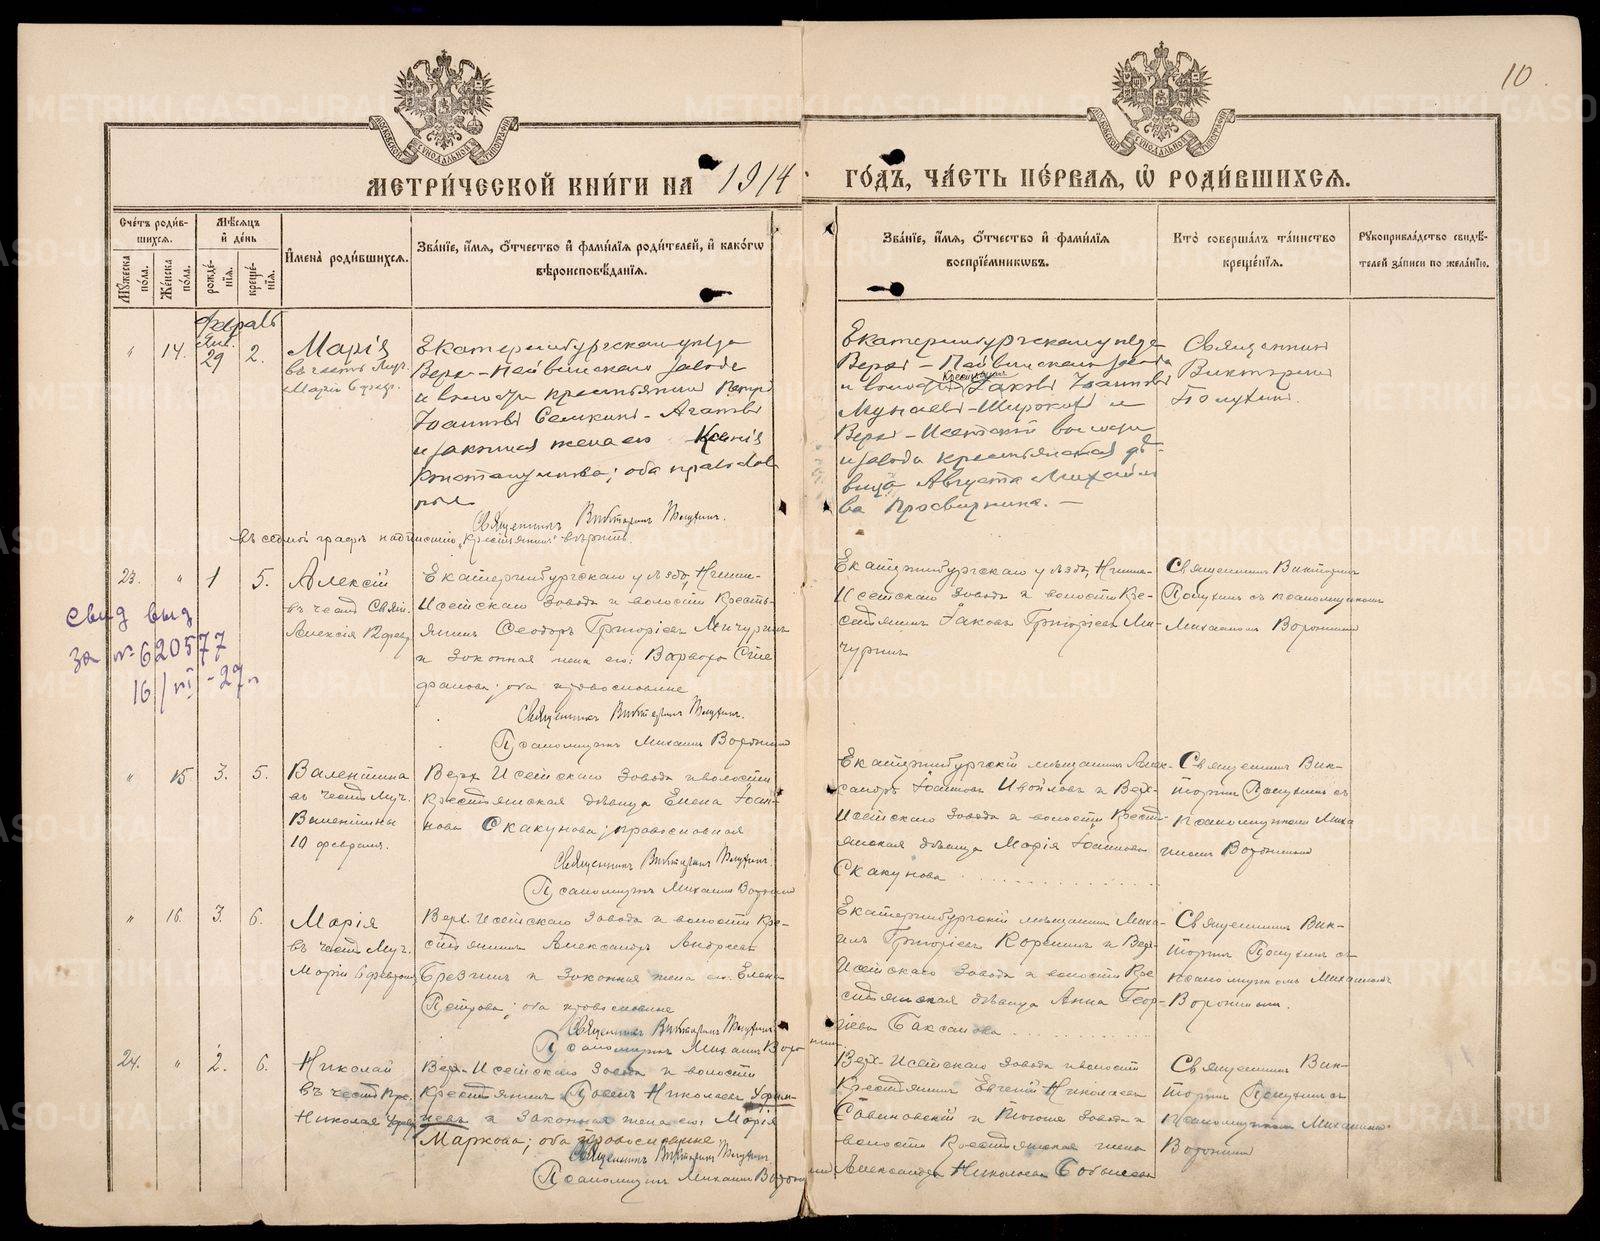 10.
МЕТРИ́ЧЕСКОЙ КНИ́ГИ НА 1914 ГО́ДЪ, ЧА́СТЬ ПЕ́РВАЯ, Ѡ҆ РОДИ́ВШИХСЯ.
Сче́тъ роди́в-
шихся.
Мꙋ́жеска по́ла.
Же́нска по́ла.
Мѣ́сяцъ
и҆ де́нь
рожде́-
нїя.
креще́-
нїя.
И҆мена̀ роди́вшихся.
Зва́нїе, и҆́мя, ѻ҆́тчество и҆ фами́лїя роди́телей, и҆ како́гѡ
вѣроисповѣ́данїя.
Зва́нїе, и҆́мя, ѻ҆́тчество и҆ фами́лїя
воспрїе́мникѡвъ.
Кто̀ соверша́лъ та́инство
креще́нїя.
Рꙋкоприкла́дство свидѣ́-
телей за́писи по жела́нїю.
Февраль
" 14. Янв. 29 2.
Марія
въ честь Муч.
Маріи 6 февр.
Екатеринбургскаго уѣзда
Верх-Нейвинскаго завода
и волости крестьянинъ Петръ
Іоанновъ Семкинъ-Агатовъ
и законная жена его Ксенія
Константинова; оба православ
ные
Священникъ Викторинъ Полухин.
Екатеринбургскаго уѣзда
Верх-Нейвинскаго завода
и волости крестьянинъ Іаковъ Іоанновъ
Мунаевъ-Широковъ и
Верх-Исетской волости
и завода крестьянская дѣ-
вица Августа Михайло
ва Просвирнина. —
Священникъ
Викторинъ
Полухинъ.
въ седмой графѣ надписанію „крестьянинъ" вѣрить.
23. " 1 5.
Алексій
въ честь Свят.
Алексія 12 февр.
Екатеринбургскаго уѣзда, Нижне-
Исетскаго завода и волости кресть-
янинъ Ѳеодоръ Григоріевъ Мичуринъ
и законная жена его Варвара Сте
фанова; оба православные
Священникъ Викторинъ Полухин.
Псаломщикъ Михаилъ Воронинъ
Екатеринбургскаго уѣзда, Нижне-
Исетскаго завода и волости кре-
стьянинъ Іаковъ Григорьевъ Ми-
чуринъ
Священникъ Викторинъ
Полухинъ съ псаломщикомъ
Михаиломъ Воронинымъ
свид выд
за № 620577
16/VI -29 г
" 15. 3. 5.
Валентина
въ честь Муч.
Валентины
10 февраля.
Верх Исетскаго завода и волости
крестьянская дѣвица Елена Іоан-
нова Скакунова; православная
Священникъ Викторинъ Полухин.
Псаломщикъ Михаилъ Воронинъ
Екатеринбургскій мѣщанинъ Алек-
сандръ Іоанновъ Ивойловъ и Верх-
Исетскаго завода и волости кресть-
янская дѣвица Марія Іоаннова
Скакунова
Священникъ Вик-
торинъ Полухинъ съ
псаломщикомъ Миха
иломъ Воронинымъ
" 16. 3. 6.
Марія
въ честь Муч.
Маріи 6 февраля
Верх-Исетскаго завода и волости кре-
стьянинъ Александръ Андреевъ
Брезгинъ и законная жена его Елена
Петрова; оба православные
Священникъ Викторинъ Полухин.
Псаломщикъ Михаилъ Воронинъ
Екатеринбургскій мѣщанинъ Миха-
илъ Григорьевъ Коренинъ и Верх-
Исетскаго завода и волости кре
стьянская дѣвица Анна Геор-
гіева Баксанова
Священникъ Вик-
торинъ Полухинъ съ
псаломщикомъ Михаиломъ
Воронинымъ.
24. " 2. 6.
Николай
въ честь Прав.
Николая
Верх-Исетскаго завода и волости
крестьянинъ Павелъ Николаевъ
и законная жена его Марія
Маркова; оба православные
Священникъ Викторинъ Полухин.
Псаломщикъ Михаилъ Воронинъ
Верх-Исетскаго завода и волости
крестьянинъ Евгеній Николаевъ
Савиновскій и того же завода и
волости крестьянская жена
Александра Николаева
Священникъ Вик-
торинъ Полухинъ съ
псаломщикомъ Михаиломъ
Воронинымъ